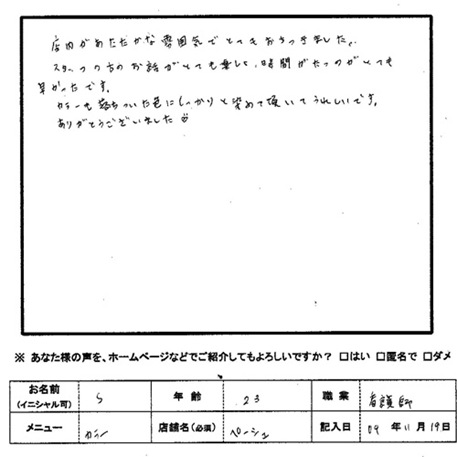 店内があたたかな雰囲気でとてもおちつきました。
スタッフの方のお話がとても楽しく、時間がたつのがとても
早かったです。
カラーも落ちついた色にしっかりと染めて頂いてうれしいです。
ありがとうございました
※ あなた様の声を、ホームページなどでご紹介してもよろしいですか？ □はい □匿名で □ダメ
お名前 (イニシャル可) S 年齢 23 職業 看護師
メニュー カラー 店舗名(必須) ページュ 記入日 09 年 11 月 19 日